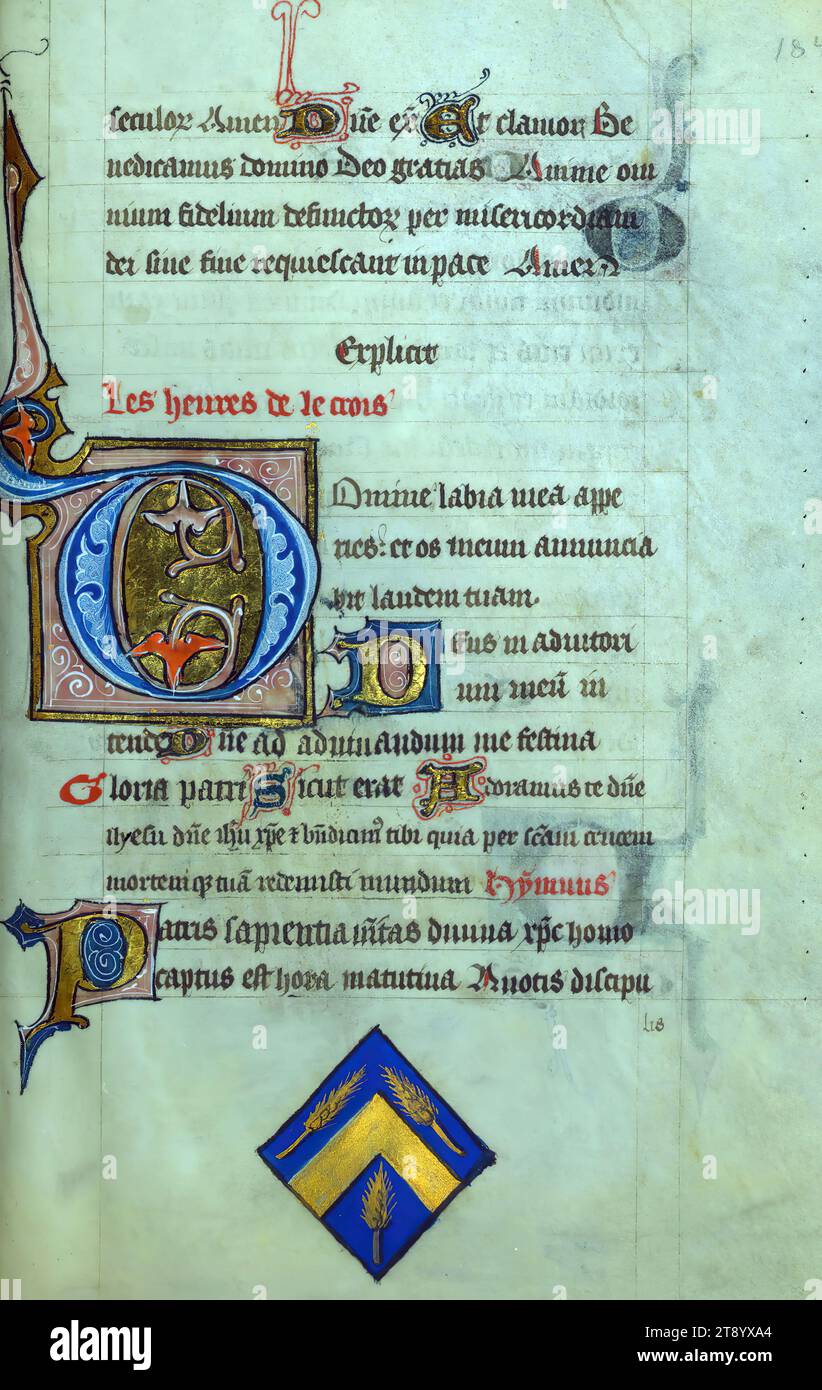 184
seculoꝝ Amen Dn̄e ex̄ Et clamor Be
nedicamus domino Deo gratias Anime om
nium fidelium defunctoꝝ per misericordiam
dei sine fine requiescant in pace Amen
Explicit
Les heures de le crois
Domine labia mea appe
ries: et os meum annuncia
bit laudem tuam.
Deus in adiutori
um meū in
tende Dn̄e ad adiuuandum me festina
Gloria patri Sicut erat Adoramus te dn̄e
ihū xp̄e ⁊ bn̄dicimꝰ tibi quia per sc̄am crucem
mortemqꝫ tuā redemisti mundum Hymnus
Patris sapientia ueritas diuina xp̄c homo
captus est hora matutina A notis discipu
lis
alamy
Image ID: 2T8YXA4
www.alamy.com